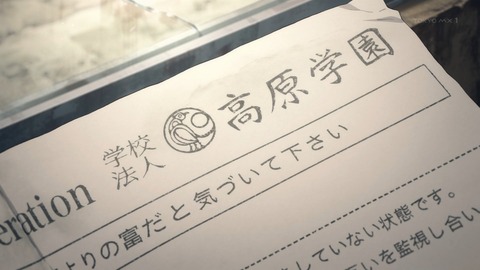 学校
法人
高原学園
eration
よりの富だと気づいて下さい
していない状態です。
いを監視し合い